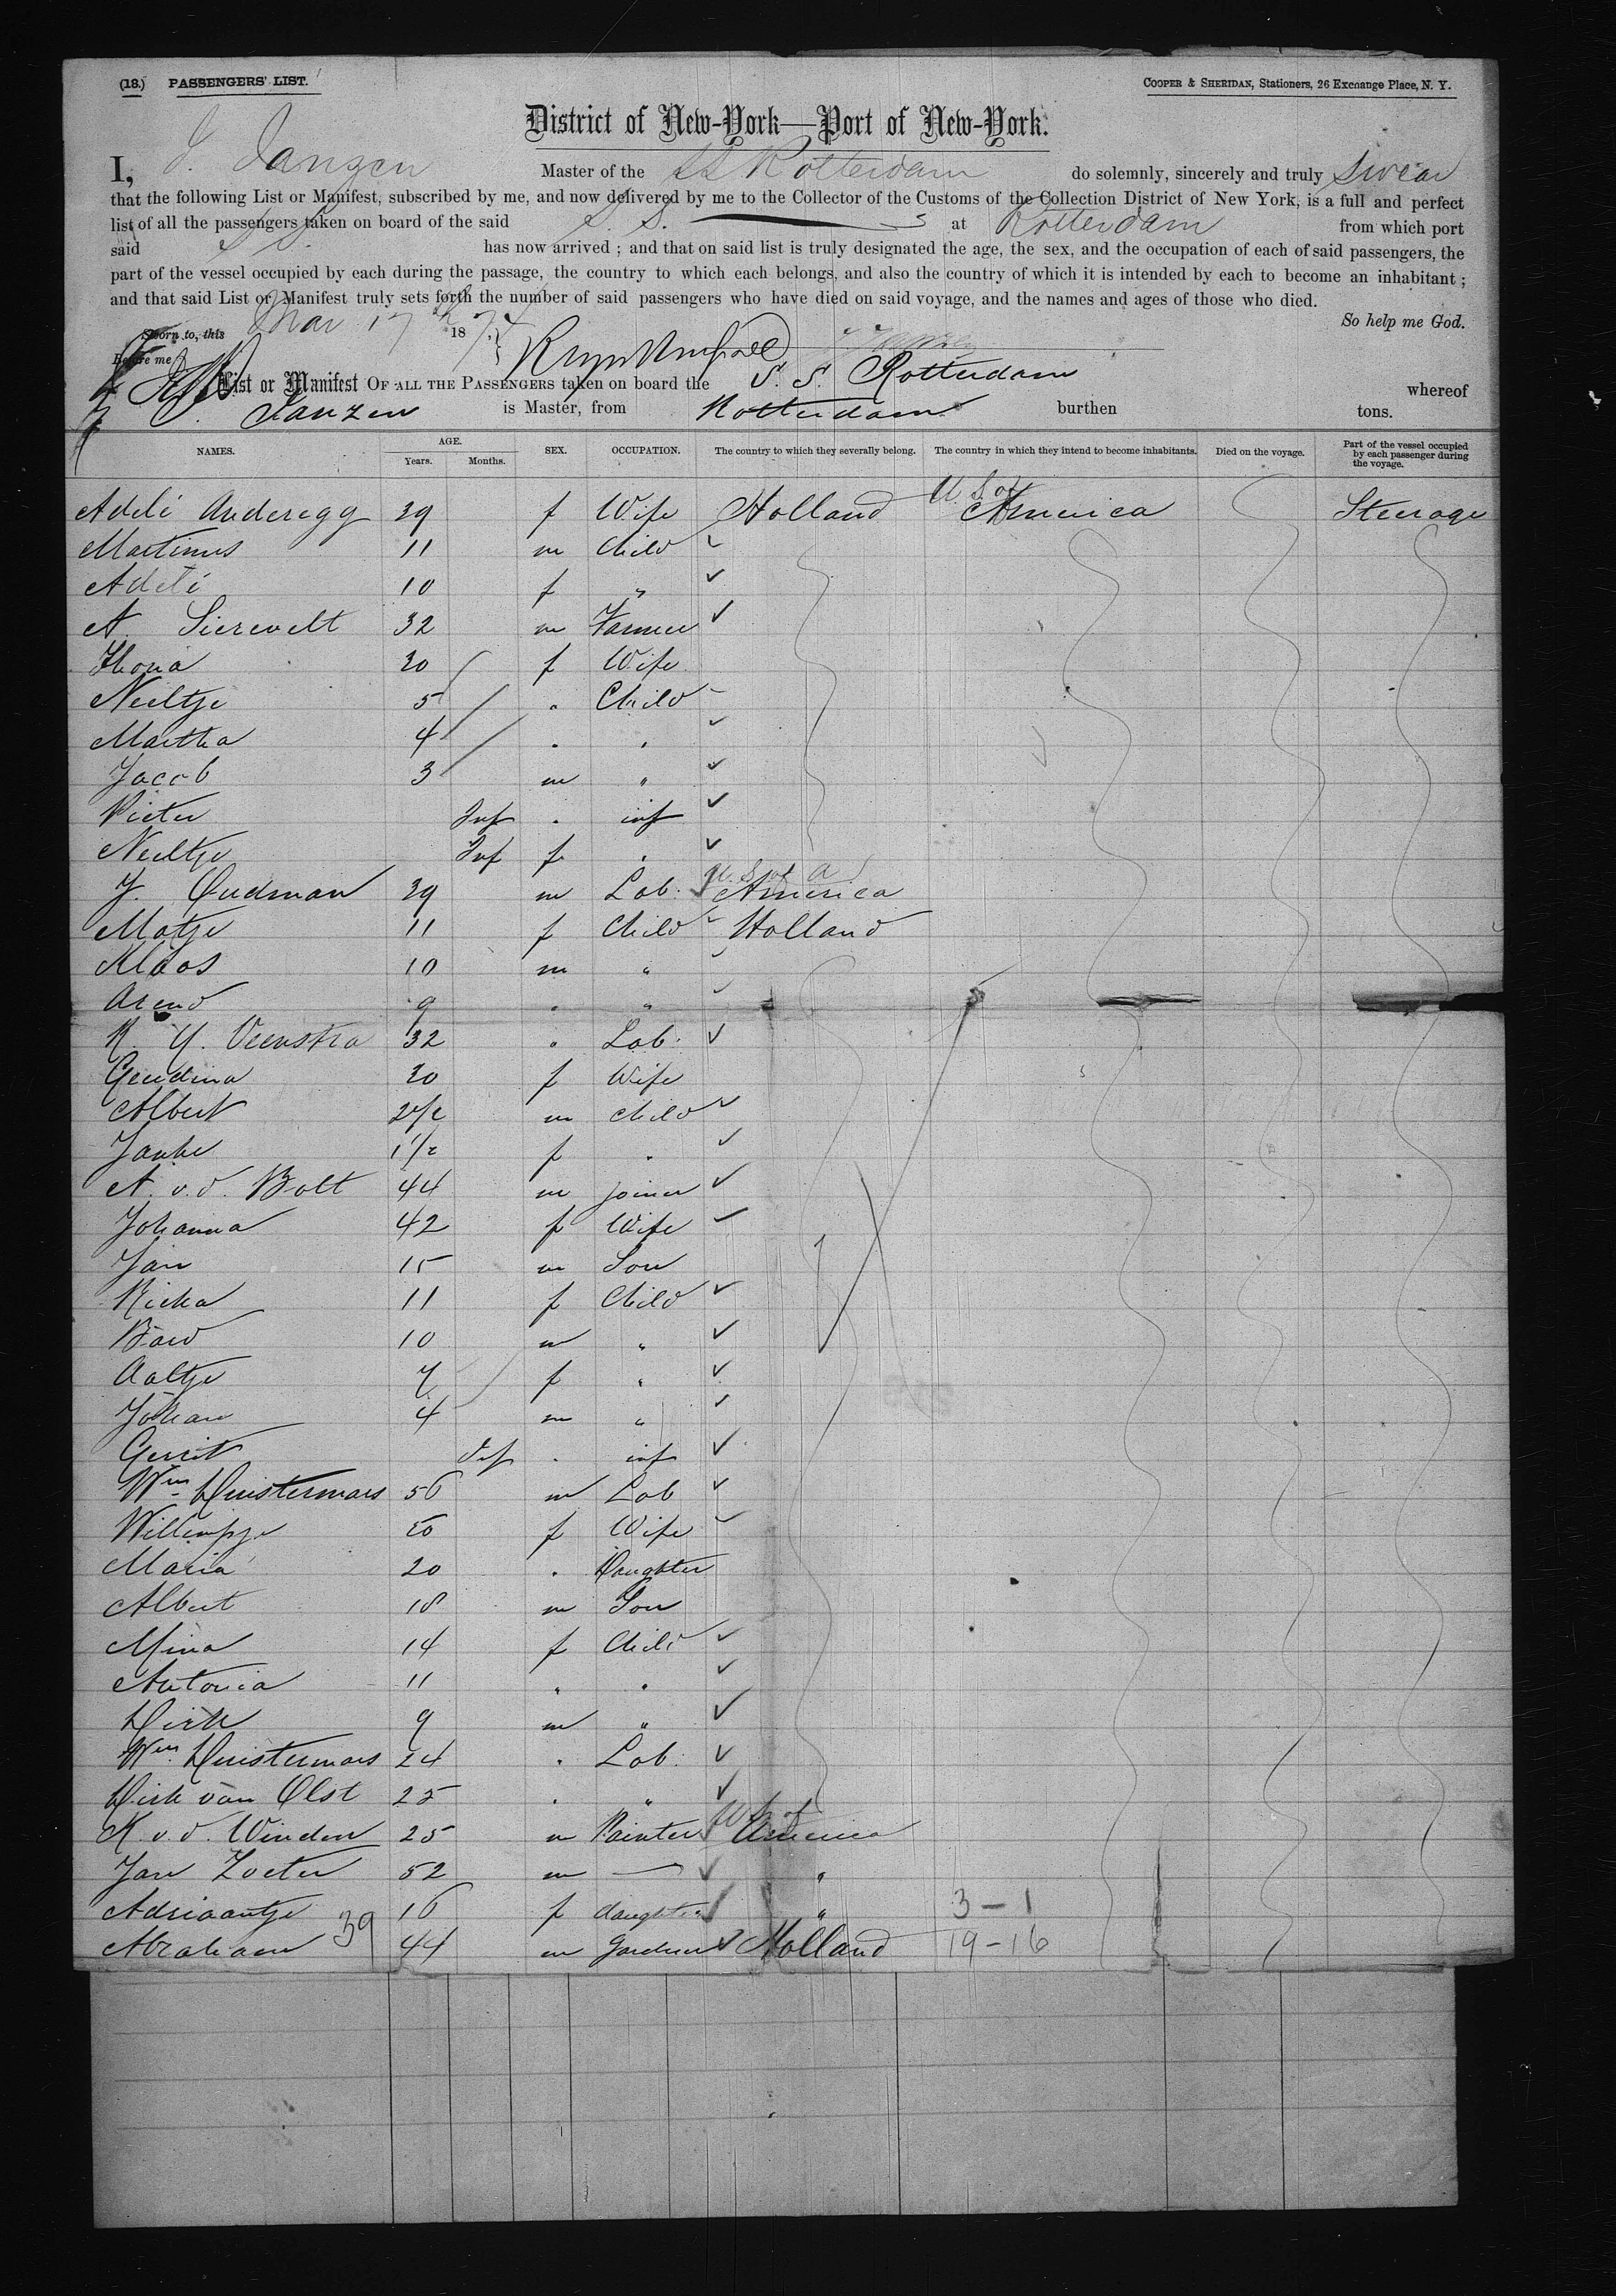 (13.) PASSENGERS' LIST.
COOPER & SHERIDAN, Stationers, 26 Exchange Place, N. Y.
District of New-York—Port of New-York.
I, J. Janzen Master of the SS Rotterdam do solemnly, sincerely and truly swear
that the following List or Manifest, subscribed by me, and now delivered by me to the Collector of the Customs of the Collection District of New York, is a full and perfect
list of all the passengers taken on board of the said S. S. at Rotterdam from which port
said S S. has now arrived ; and that on said list is truly designated the age, the sex, and the occupation of each of said passengers, the
part of the vessel occupied by each during the passage, the country to which each belongs, and also the country of which it is intended by each to become an inhabitant ;
and that said List or Manifest truly sets forth the number of said passengers who have died on said voyage, and the names and ages of those who died.
So help me God.
Sworn to, this Mar 17th 18
Before me
List or Manifest OF ALL THE PASSENGERS taken on board the S. S. Rotterdam whereof
J. Janzen is Master, from Rotterdam burthen tons.
NAMES. AGE. Years. Months. SEX. OCCUPATION. The country to which they severally belong. The country in which they intend to become inhabitants. Died on the voyage. Part of the vessel occupied by each passenger during the voyage.
Adeli Anderegg 39 f Wife Holland U. S. of America Steerage
Martinus 11 m Child
Adeli 10 f "
A. Sierevelt 32 m Farmer
30 f Wife
Neeltje 5 " Child
Martha 4 " "
Jacob 3 m "
Pieter Inf " inf
Neeltje Inf f "
J. Oudman 39 m Lab. U. S. of America
Matje 11 f Child Holland
Klaas 10 m "
Arend 9 " "
R. Y. Veenstra 32 " Lab.
Geudina 30 f Wife
Albert 2 1/2 m Child
Janke 1 1/2 f "
A. v. d. Bolt 44 m Joiner
Johanna 42 f Wife
Jan 15 m Son
Ricka 11 f Child
10 m "
Aaltje 7 f "
Johan 4 m "
Gerrit Inf " inf
Wm Huistermars 56 m Lab
Willempje 50 f Wife
Maria 20 " Daughter
Albert 18 m Son
Mina 14 f Child
Antonia 11 " "
Dirk 9 m "
Wm. Huistermars 24 " Lab.
Dirk van Olst 25 " "
K. v. d. Winden 25 m Painter U S of America
Jan Zoeter 52 m — "
Adriaantje 16 f daughter " 3 - 1
Abraham 39 44 m Gardner Holland 19 - 16